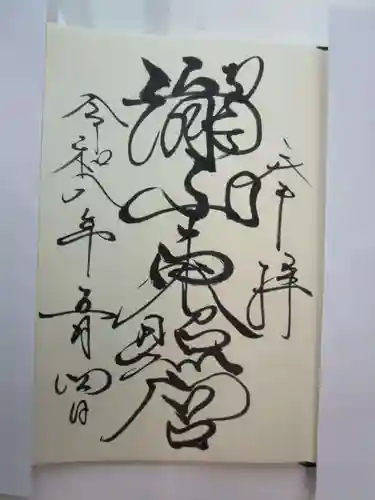 奉拝
瀧山東照宮
令和八年五月四日